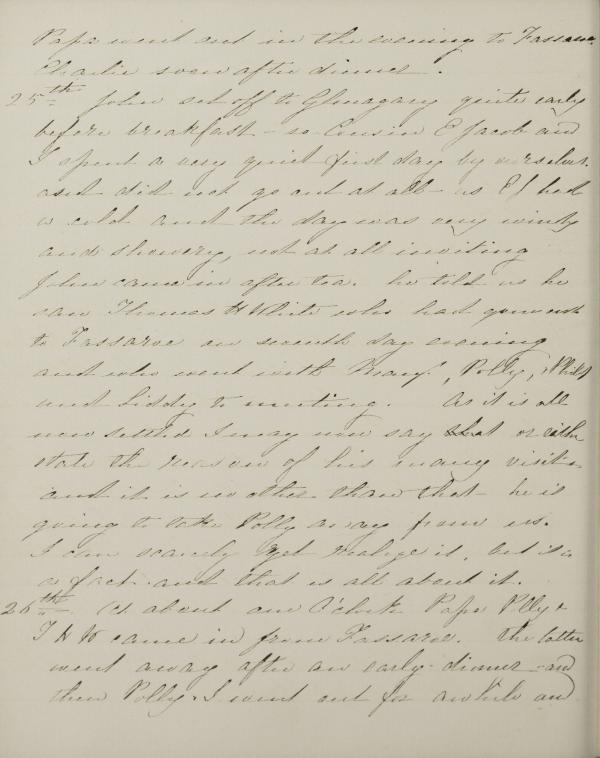 Papa went out in the evening to Fassaroe
Charlie soon after dinner.
25th John set off to Glenagary quite early
before breakfast - so Cousin E Jacob and
I spent a very quiet first day by ourselves.
and did not go out at all as EJ had
a cold and the day was very windy
and showery, not at all inviting
John came in after tea. he told us he
saw Thomas H White who had gone out
to Fassaroe on seventh day evening
and who went with Mary, Polly, Philip
and Liddy to meeting. As it is all
now settled I may now say that or rather
state the reason of his many visits
and it is no other than that he is
going to take Polly away from us.
I can scarcely yet realize it, but it is
a fact and that is all about it.
26th At about one O'clock Papa Polly &
T H W came in from Fassaroe. The latter
went away after an early dinner - and
then Polly & I went out for awhile and